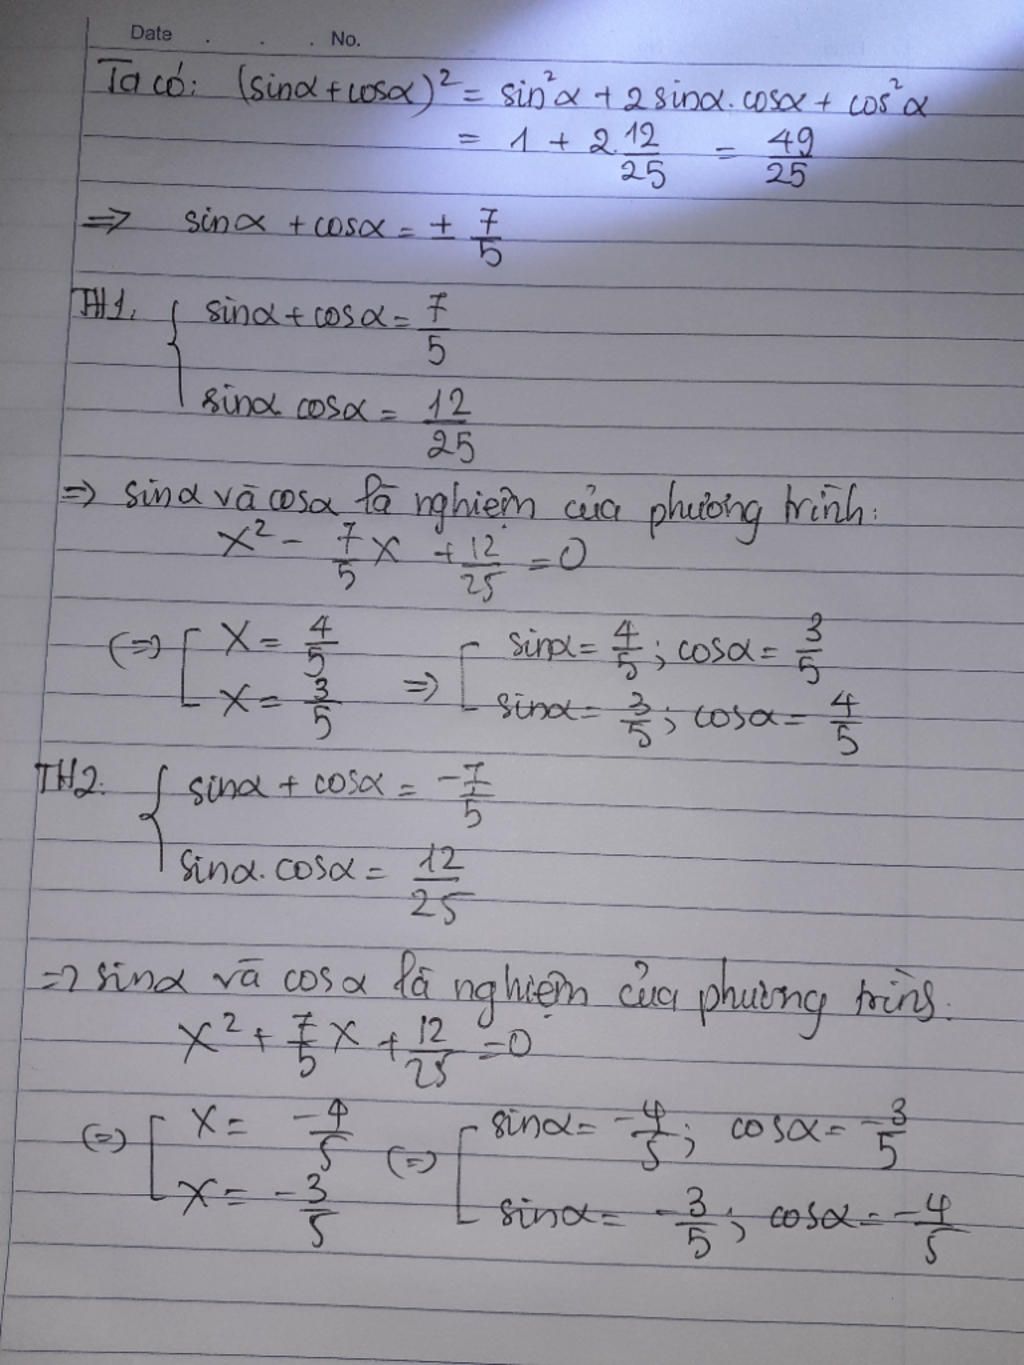 Date . . . No.
Ta có: (sinα + cosα)² = sin²α + 2 sinα . cosα + cos²α
= 1 + 2 . 12/25 = 49/25
=> sinα + cosα = ± 7/5
TH1. { sinα + cosα = 7/5
sinα cosα = 12/25
=> sinα và cosα là nghiệm của phương trình:
x² - 7/5 x + 12/25 = 0
(=) [ x = 4/5
x = 3/5
=> [ sinα = 4/5 ; cosα = 3/5
sinα = 3/5 ; cosα = 4/5
TH2. { sinα + cosα = -7/5
sinα . cosα = 12/25
=> sinα và cosα là nghiệm của phương trình.
x² + 7/5 x + 12/25 = 0
(=) [ x = -4/5
x = -3/5
(=) [ sinα = -4/5 ; cosα = -3/5
sinα = -3/5 ; cosα = -4/5